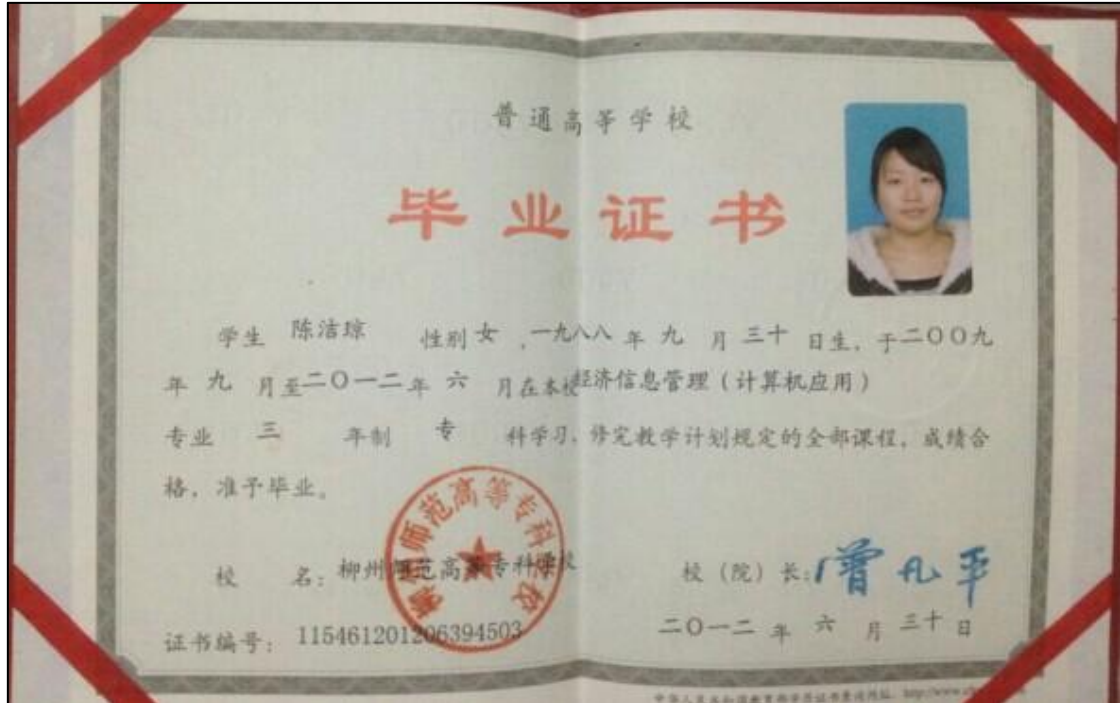 普通高等学校
毕业证书
学生 陈洁琼 性别 女 ,一九八八 年 九 月 三十 日生, 于二〇〇九
年 九 月至二〇一二年 六 月在本校经济信息管理(计算机应用)
专业 三 年制 专 科学习, 修完教学计划规定的全部课程, 成绩合
格, 准予毕业。
柳州师范高等专科学校
校 名: 柳州师范高等专科学校
校(院)长: 曾凡平
证书编号: 115461201206394503
二〇一二 年 六 月 三十 日
中华人民共和国教育部学历证书查询网址: http://www.